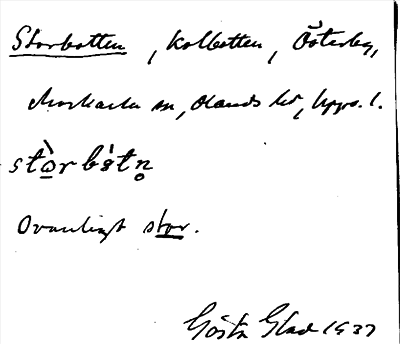 Storbotten, Kolbotten, Österby,
Morkarla sn, Olands hd, Upps. l.
stòrbòtn̥
Ovanligt stor.
Gösta Glad 1937